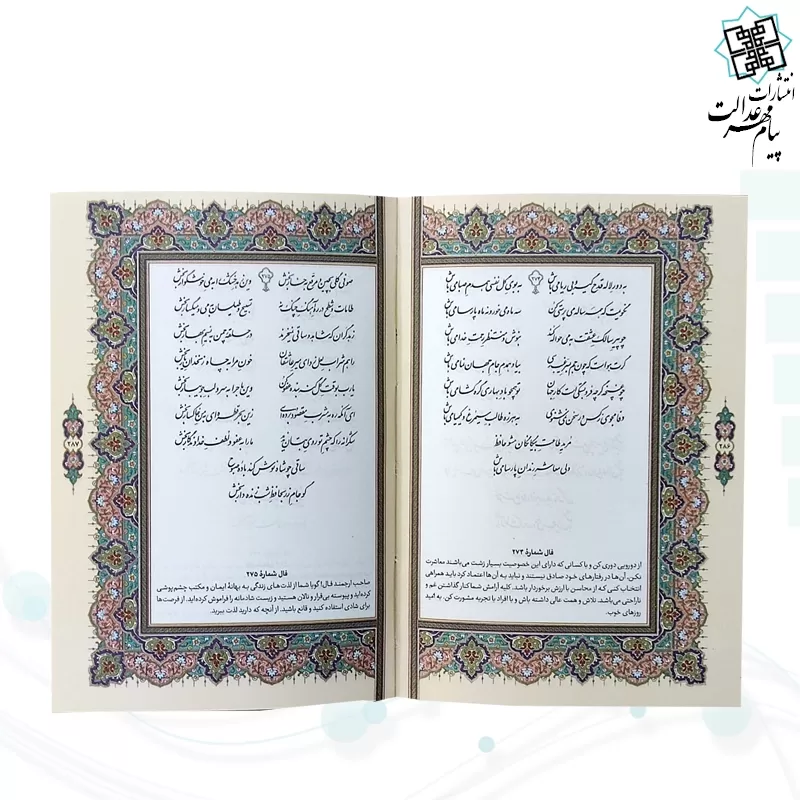 انتشارات
پیام مهر عدالت
به دور لاله قدح گیر و بی‌ریا می‌باش به بوی گل نفسی همدم صبا می‌باش
نگویمت که همه ساله می پرستی کن سه ماه می خور و نه ماه پارسا می‌باش
چو پیر سالک عشقت به می حواله کند بنوش و منتظر رحمت خدا می‌باش
گرت هواست که چون جم به سر غیب رسی بیا و همدم جام جهان نما می‌باش
چو غنچه گرچه فروبستگیست کار جهان تو همچو باد بهاری گره گشا می‌باش
وفا مجوی ز کس ور سخن نمی‌شنوی به هرزه طالب سیمرغ و کیمیا می‌باش
مرید طاعت بیگانگان مشو حافظ
ولی معاشر رندان پارسا می‌باش
فال شمارهٔ ۲۷۳
از دورویی دوری کن و با کسانی که دارای این خصوصیت بسیار زشت می‌باشند معاشرت
نکن. آن‌ها در رفتارهای خود صادق نیستند و نباید به آن‌ها اعتماد کرد باید همراهی
انتخاب کنی که از محاسن با ارزش برخوردار باشد. کلبه آرامش شما کنار گذاشتن غم و
ناراحتی می‌باشد. تلاش و همت عالی داشته باش و با افراد با تجربه مشورت کن. به امید
روزهای خوب.
۲۸۶
صوفی گلی بچین و مرقع به خار بخش وین زهد خشک را به می خوشگوار بخش
طامات و شطح در ره آهنگ چنگ نه تسبیح و طیلسان به می و میگسار بخش
زهد گران که شاهد و ساقی نمی‌خرند در حلقه چمن به نسیم بهار بخش
راهم شراب لعل زد ای میر عاشقان خون مرا به چاه زنخدان یار بخش
یا رب به وقت گل گنه بنده عفو کن وین ماجرا به سرو لب جویبار بخش
ای آنکه ره به مشرب مقصود برده‌ای زین بحر قطره‌ای به من خاکسار بخش
شکرانه را که چشم تو روی بتان ندید ما را به عفو و لطف خداوندگار بخش
ساقی چو شاه نوش کند باده صبوح
گو جام زر به حافظ شب زنده دار بخش
فال شمارهٔ ۲۷۵
صاحب ارجمند فال! گویا شما از لذت‌های زندگی به بهانهٔ ایمان و مکتب چشم‌پوشی
کرده‌اید و پیوسته بی‌قرار و نالان هستید و زیست شادمانه را فراموش کرده‌اید. از فرصت‌ها
برای شادی استفاده کنید و قانع باشید. از آنچه که دارید لذت ببرید.
۲۸۷